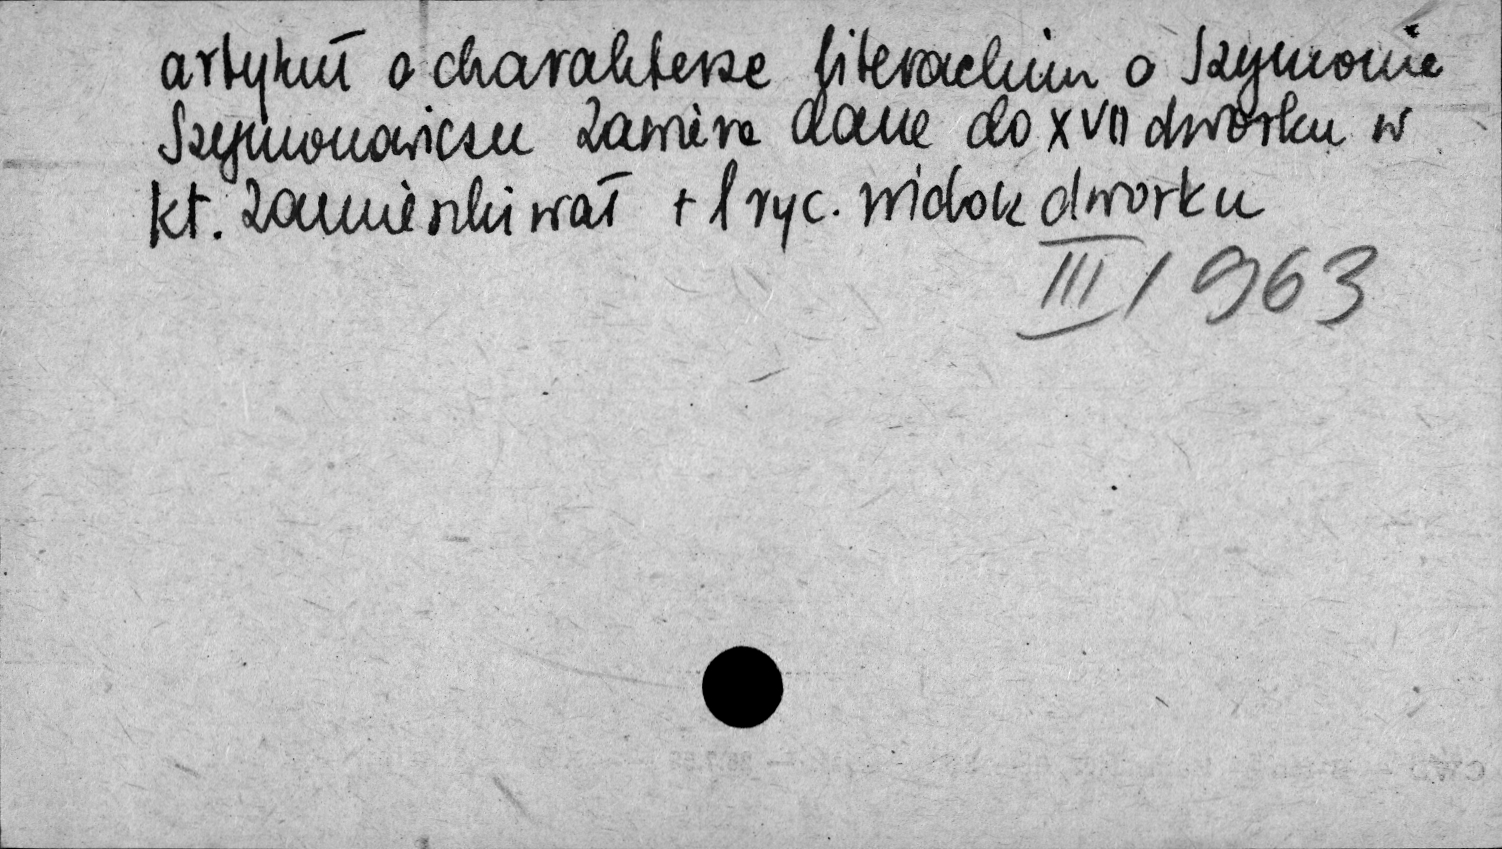 artykuł o charakterze literackim o Szymonie
Szymonowiczu zawiera dane do XVII dworku w
kt. zamieszkiwał + 1 ryc. widok dworku
III/963